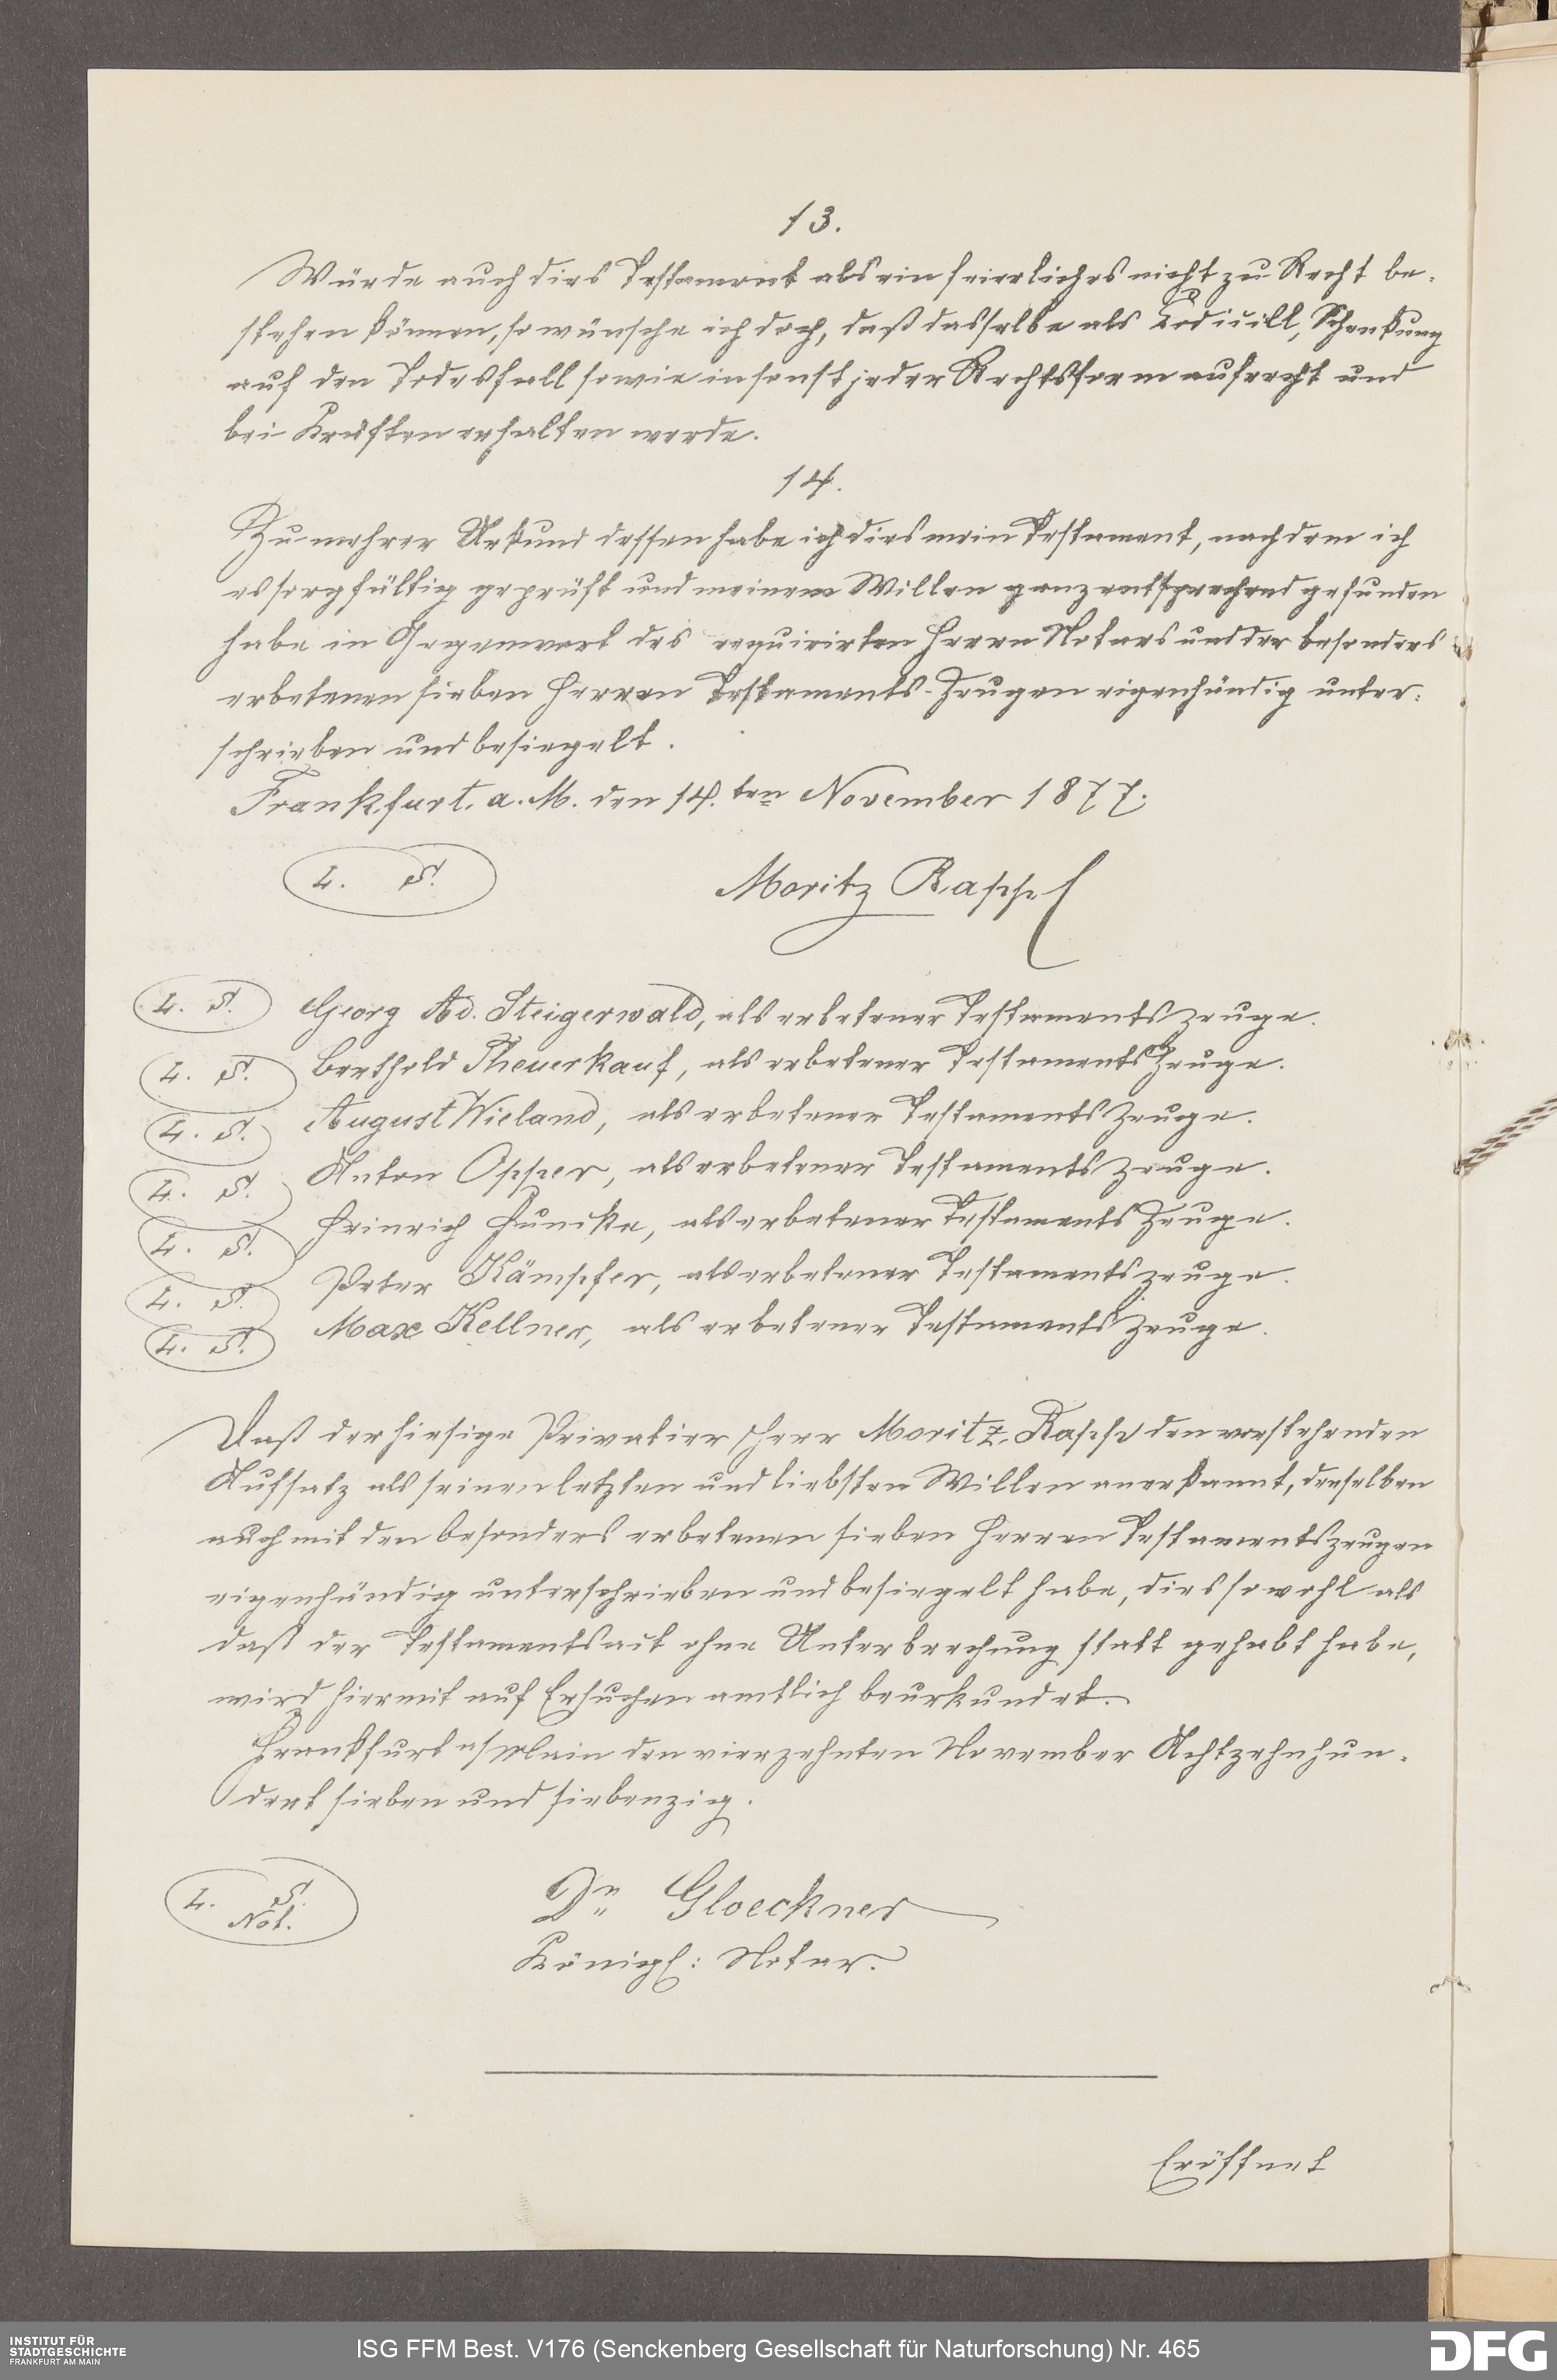 13.
Würde auch dies Testament als ein feierliches nicht zu Recht be-
stehen können, so wünsche ich doch, daß dasselbe als Codicill, Schenkung
auf den Todesfall sowie in sonst jeder Rechtsform aufrecht und
bei Kräften erhalten werde.
14.
Zu mehrer Urkund dessen habe ich dies mein Testament, nachdem ich
es sorgfältig geprüft und meinem Willen ganz entsprechend gefunden
habe in Gegenwart des requirirten Herrn Notars und der besonders
erbetenen sieben Herren Testaments-Zeugen eigenhändig unter-
schrieben und besiegelt.
Frankfurt. a. M. den 14.ten November 1877.
L. S. Moritz Rapp
L. S. Georg Ad. Steigerwald, als erbetener Testaments zeuge.
L. S. Berthold Theuerkauf, als erbetener Testaments Zeuge.
L. S. August Wieland, als erbetener Testaments Zeuge.
L. S. Anton Opper, als erbetener Testaments zeuge.
L. S. Heinrich Hunike, als erbetener Testaments Zeuge.
L. S. Peter Kämpfer, als erbetener Testaments zeuge.
L. S. Max Kellner, als erbetener Testaments Zeuge.
Daß der hiesige Privatier Herr Moritz Rapp den vorstehenden
Aufsatz als seinen letzten und liebsten Willen anerkannt, denselben
auch mit den besonders erbetenen sieben Herren Testamentszeugen
eigenhändig unterschrieben und besiegelt habe, dies sowohl als
daß der Testamentsact ohne Unterbrechung statt gehabt habe,
wird hiermit auf Ersuchen amtlich beurkundet.
Frankfurt a/Main den vierzehnten November Achtzehnhun-
dert sieben und siebenzig.
L. S.
Not.
Dr. Gloeckner
Königl: Notar.
Eröffnet
INSTITUT FÜR
STADTGESCHICHTE
FRANKFURT AM MAIN
ISG FFM Best. V176 (Senckenberg Gesellschaft für Naturforschung) Nr. 465
DFG